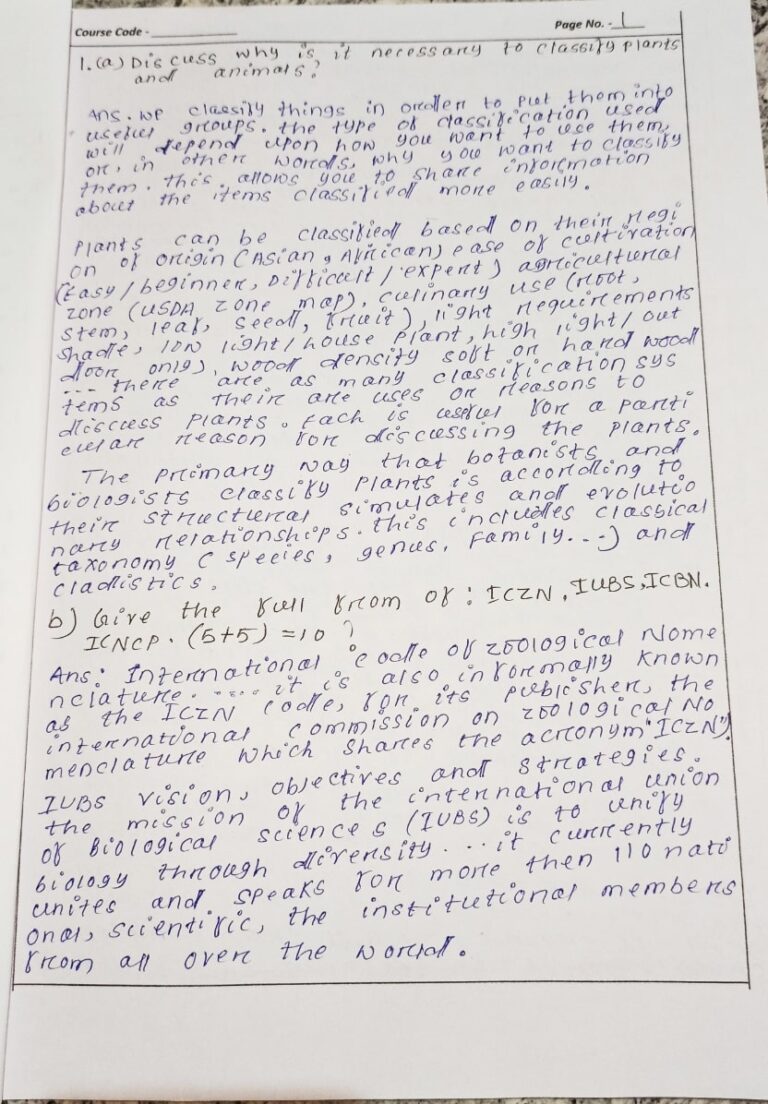 Course Code -
Page No. - 1
1. (a) Discuss why is it necessary to classify plants
and animals?
Ans. we classify things in order to put them into
useful groups. the type of classification used
will depend upon how you want to use them,
or, in other words, why you want to classify
them. this allows you to share information
about the items classified more easily.
Plants can be classified based on their regi
on of origin (Asian, African) ease of cultivation
(Easy/beginner, Difficult/expert) agricultural
zone (USDA zone map), culinary use (root,
stem, leaf, seed, fruit), light requirements
shade, low light/house plant, high light/out
door only), wood density soft or hard wood
... there are as many classification sys
tems as their are uses or reasons to
discuss plants. Each is useful for a parti
cular reason for discussing the plants.
The primary way that botanists and
biologists classify plants is according to
their structural simulates and evolutio
nary relationships. this includes classical
taxonomy (species, genus, family...) and
cladistics.
b) Give the full from of: ICZN, IUBS, ICBN.
ICNCP. (5+5) =10 ?
Ans: International code of zoological Nome
nclature. .... it is also informally known
as the ICZN code, for its publisher, the
international commission on zoological No
menclature which shares the acronym "ICZN").
IUBS vision, objectives and strategies.
the mission of the international union
of Biological sciences (IUBS) is to unify
biology through diversity... it currently
unites and speaks for more then 110 nati
onal, scientific, the institutional members
from all over the world.